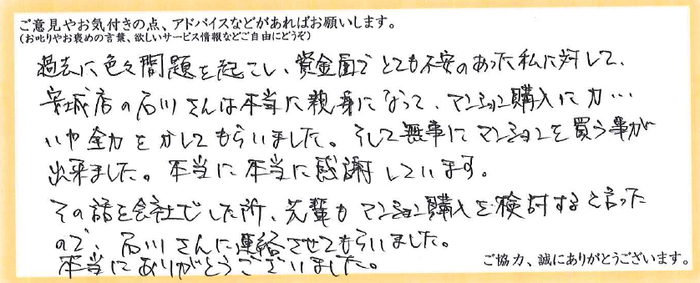 ご意見やお気付きの点、アドバイスなどがあればお願いします。
(お叱りやお褒めの言葉、欲しいサービス情報などご自由にどうぞ)
過去に色々問題を起こし、資金面でとても不安のあった私に対して、
安城店の石川さんは本当に親身になって、マンション購入に力…
いや全力をかしてもらいました。そして無事にマンションを買う事が
出来ました。本当に本当に感謝しています。
その話を会社でした所、先輩もマンション購入を検討すると言った
ので、石川さんに連絡させてもらいました。
本当にありがとうございました。
ご協力、誠にありがとうございます。